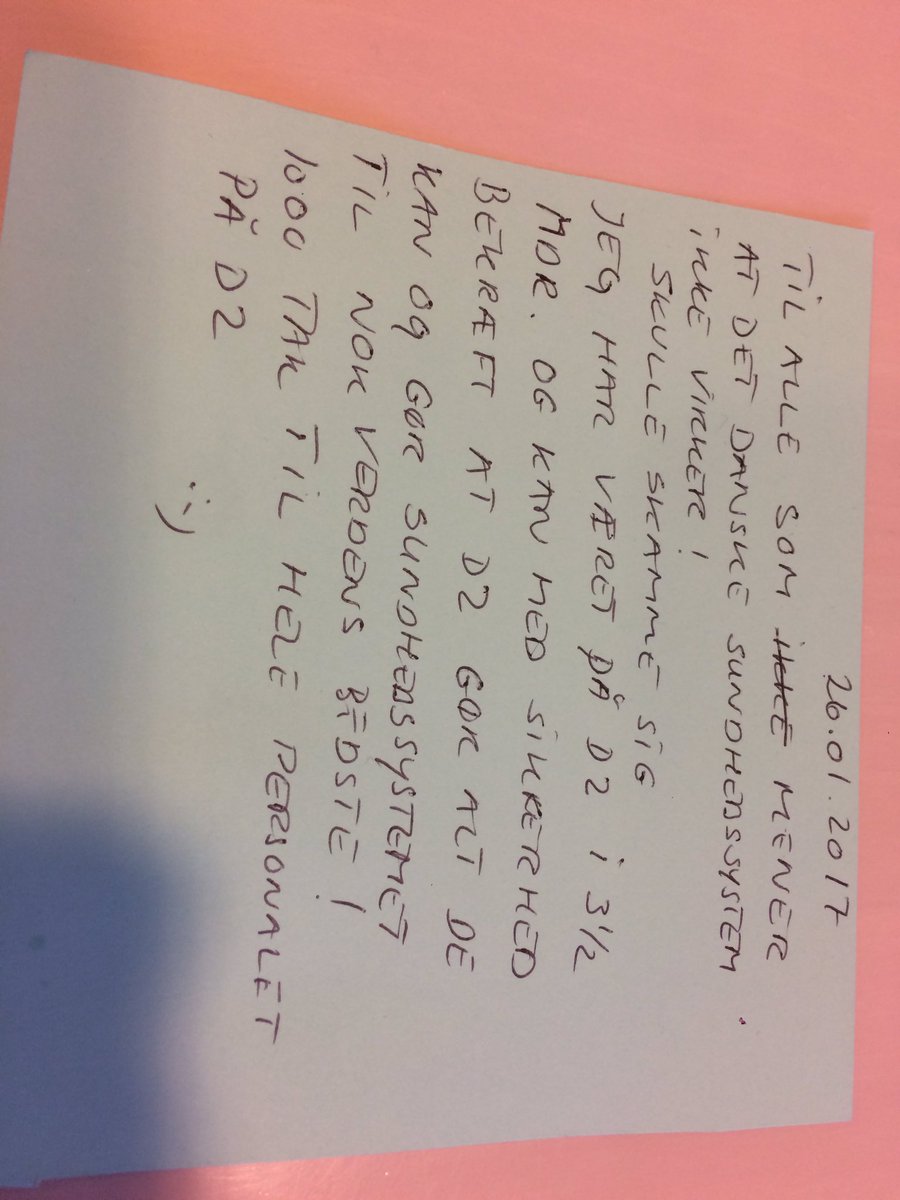 26.01.2017
TIL ALLE SOM IKKE MENER
AT DET DANSKE SUNDHEDSSYSTEM
IKKE VIRKER!
SKULLE SKAMME SIG
JEG HAR VÆRET PÅ D2 I 3 1/2
MDR. OG KAN MED SIKKERHED
BEKRÆFT AT D2 GØR ALT DE
KAN OG GØR SUNDHEDSSYSTEMET
TIL NOK VERDENS BEDSTE!
1000 TAK TIL HELE PERSONALET
PÅ D2
:-)